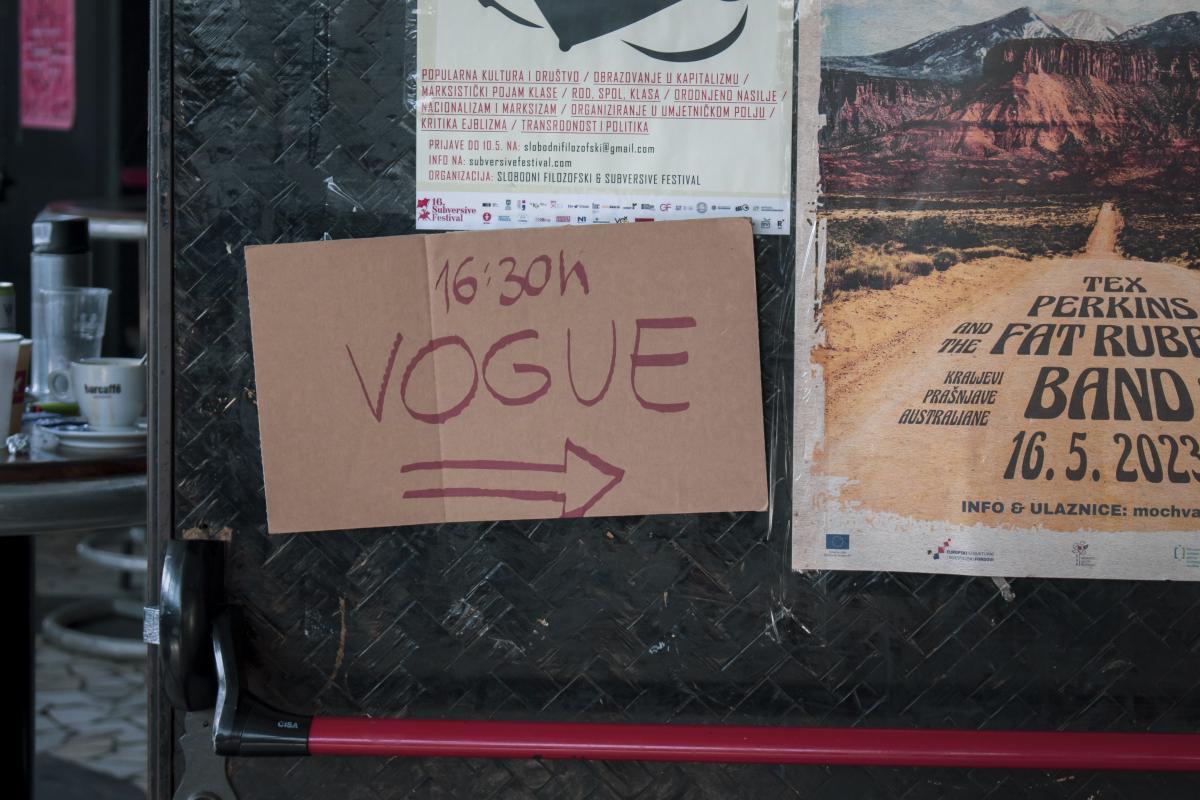 POPULARNA KULTURA I DRUŠTVO / OBRAZOVANJE U KAPITALIZMU /
MARKSISTIČKI POJAM KLASE / ROD, SPOL, KLASA / ORODNJENO NASILJE /
NACIONALIZAM I MARKSIZAM / ORGANIZIRANJE U UMJETNIČKOM POLJU /
KRITIKA EJBLIZMA / TRANSRODNOST I POLITIKA
PRIJAVE DO 10.5. NA: slobodnifilozofski@gmail.com
INFO NA: subversivefestival.com
ORGANIZACIJA: SLOBODNI FILOZOFSKI & SUBVERSIVE FESTIVAL
16.
Subversive
Festival
16:30h
VOGUE
TEX
PERKINS
AND
THE
FAT RUBB
BAND
KRALJEVI
PRAŠNJAVE
AUSTRALIANE
16. 5. 2023
INFO & ULAZNICE: mochva
barcaffè
CISA